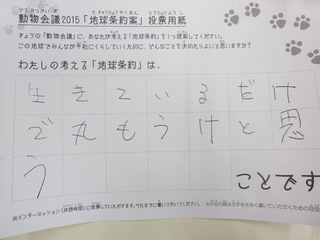 動物会議2015「地球条約案」投票用紙
きょうの「動物会議」に、あなたが考える「地球条約」を1つ提案してください。
この地球でみんなが平和にくらしていくために、どんなことを決めたらよいと思いますか?
わたしの考える「地球条約」は、
生きているだけ
で丸もうけと思
う
することです